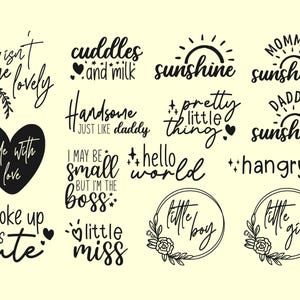 isn't
lovely
cuddles
and milk
sunshine
MOMM
sunshi
Handsome
JUST LIKE daddy
pretty
little
thing
DADD
sunshi
de with
love
I MAY BE
small
BUT I'M THE
boss
hello
world
hangr
oke up
ute
little
miss
little
boy
little
gi